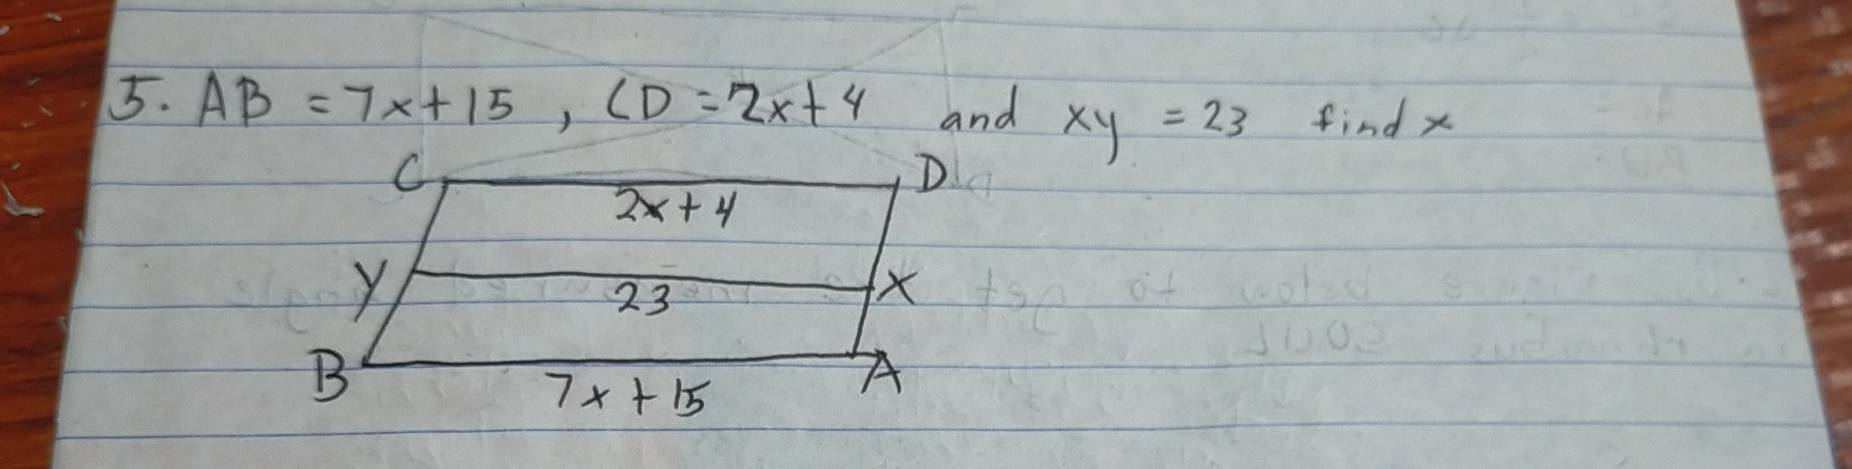 5. AB = 7x+15 , CD = 2x+4 and xy = 23 find x
C D
2x+4
y x
23
B A
7x+15